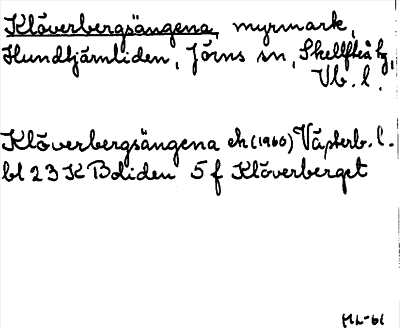 Klöverbergsängena, myrmark,
Hundtjärnliden, Jörns sn, Skellefteå tg,
Vb. l.
Klöverbergsängena ek (1960) Västerb. l.
bl 23 K Boliden 5 f Klöverberget
HL-61